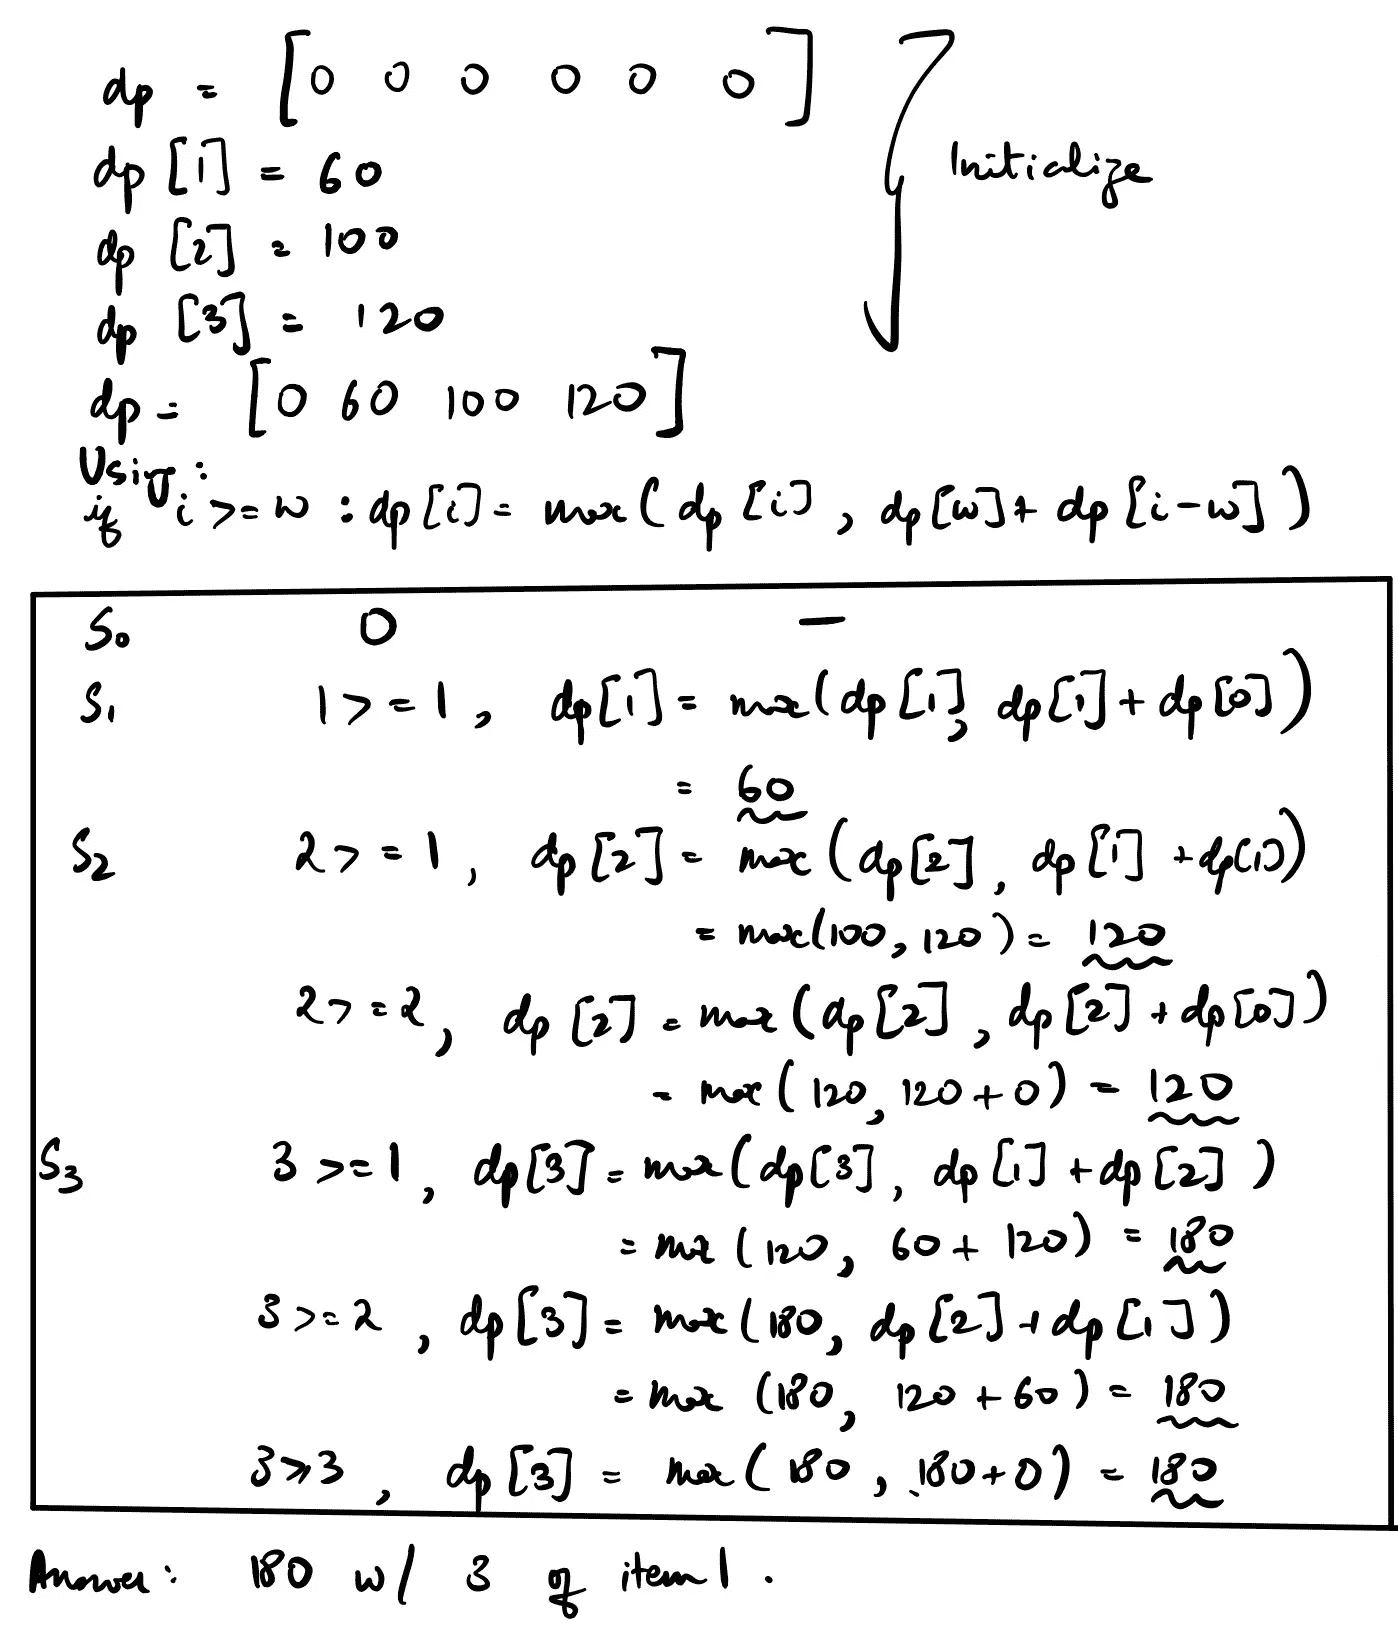 dp = [0 0 0 0 0 0]
dp [1] = 60
Initialize
dp [2] = 100
dp [3] = 120
dp = [0 60 100 120]
Using:
if i >= w : dp[i] = max( dp [i] , dp[w] + dp [i-w] )
S0 0 —
S1 1 >= 1, dp[1] = max(dp [1], dp[1] + dp[0])
= 60
S2 2 >= 1, dp [2] = max (dp[2], dp [1] + dp[1])
= max(100, 120) = 120
2 >= 2, dp [2] = max (dp[2], dp[2] + dp[0])
= max (120, 120 + 0) = 120
S3 3 >= 1, dp[3] = max(dp[3], dp [1] + dp [2] )
= max (120, 60 + 120) = 180
3 >= 2, dp [3] = max (180, dp [2] + dp [1])
= max (180, 120 + 60) = 180
3 >= 3, dp [3] = max (180, 180+0) = 180
Answer: 180 w/ 3 of item 1.